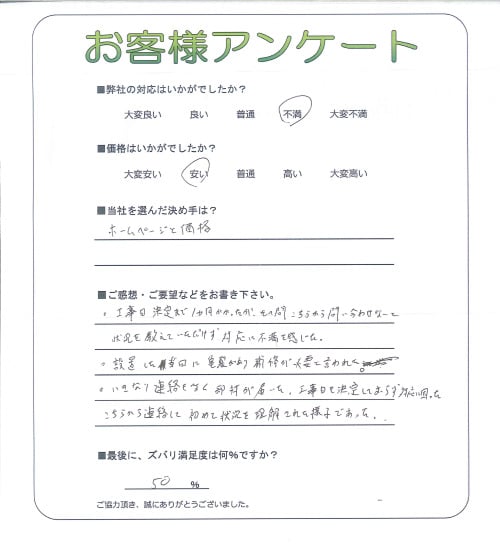 お客様アンケート
■弊社の対応はいかがでしたか？
大変良い 良い 普通 不満 大変不満
■価格はいかがでしたか？
大変安い 安い 普通 高い 大変高い
■当社を選んだ決め手は？
ホームページと価格
■ご感想・ご要望などをお書き下さい。
・工事日決定まで1ヶ月かかったが、その間こちらから問い合わせないと
状況を教えていただけず対応に不満を感じた。
・設置した当日に 補修が必要と言われた。
・いきなり連絡もなく部材が届いた。工事日も決定しておらず 困った
こちらから連絡して初めて状況を理解された様子であった。
■最後に、ズバリ満足度は何％ですか？
50 ％
ご協力頂き、誠にありがとうございました。